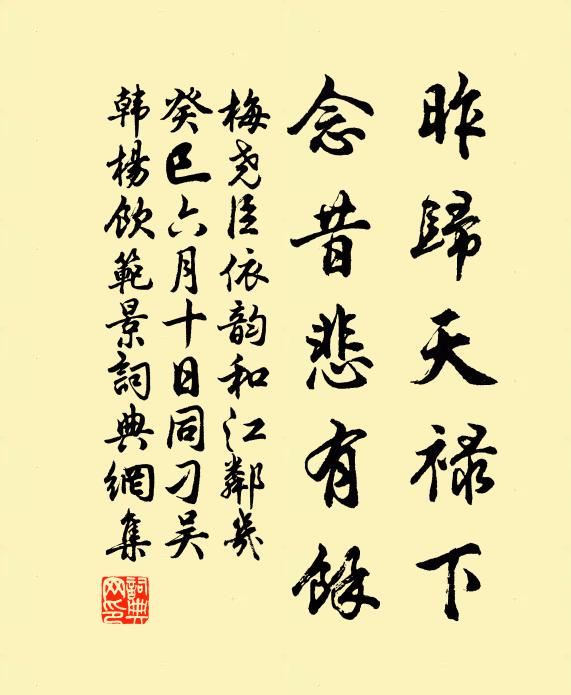 昨歸天禄下
念昔悲有餘
梅尧臣依韵和江鄰幾
癸巳六月十日同刁吴
韩楊飲範景詞典網集
詞典网印